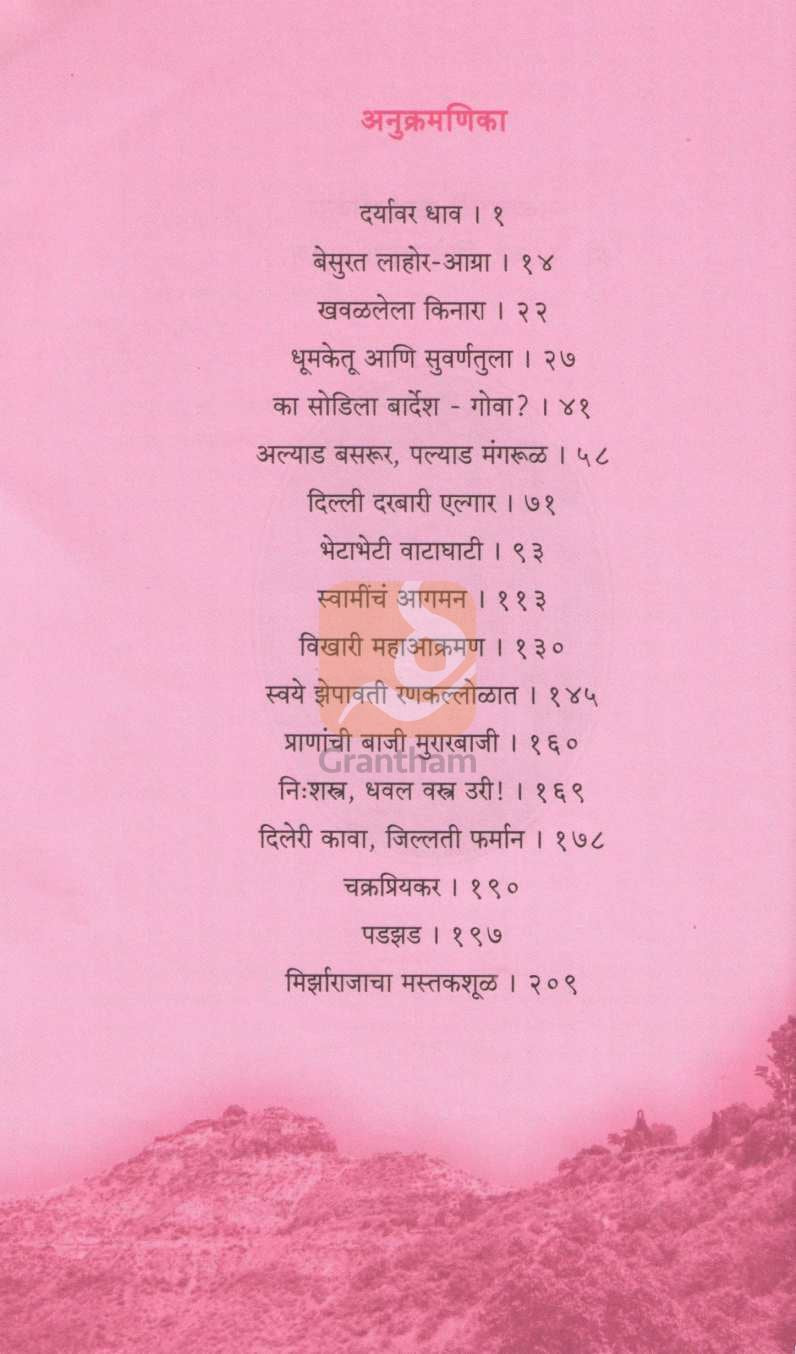 अनुक्रमणिका
दर्यावर धाव । १
बेसुरत लाहोर-आग्रा । १४
खवळलेला किनारा । २२
धूमकेतू आणि सुवर्णतुला । २७
का सोडिला बार्देश - गोवा? । ४१
अल्याड बसरूर, पल्याड मंगरूळ । ५८
दिल्ली दरबारी एल्गार । ७१
भेटाभेटी वाटाघाटी । ९३
स्वामींचं आगमन । ११३
विखारी महाआक्रमण । १३०
स्वये झेपावती रणकल्लोळात । १४५
प्राणांची बाजी मुरारबाजी । १६०
Grantham
निःशस्त्र, धवल वस्त्र उरी! । १६९
दिलेरी कावा, जिल्लती फर्मान । १७८
चक्रप्रियकर । १९०
पडझड । १९७
मिर्झाराजाचा मस्तकशूळ । २०९